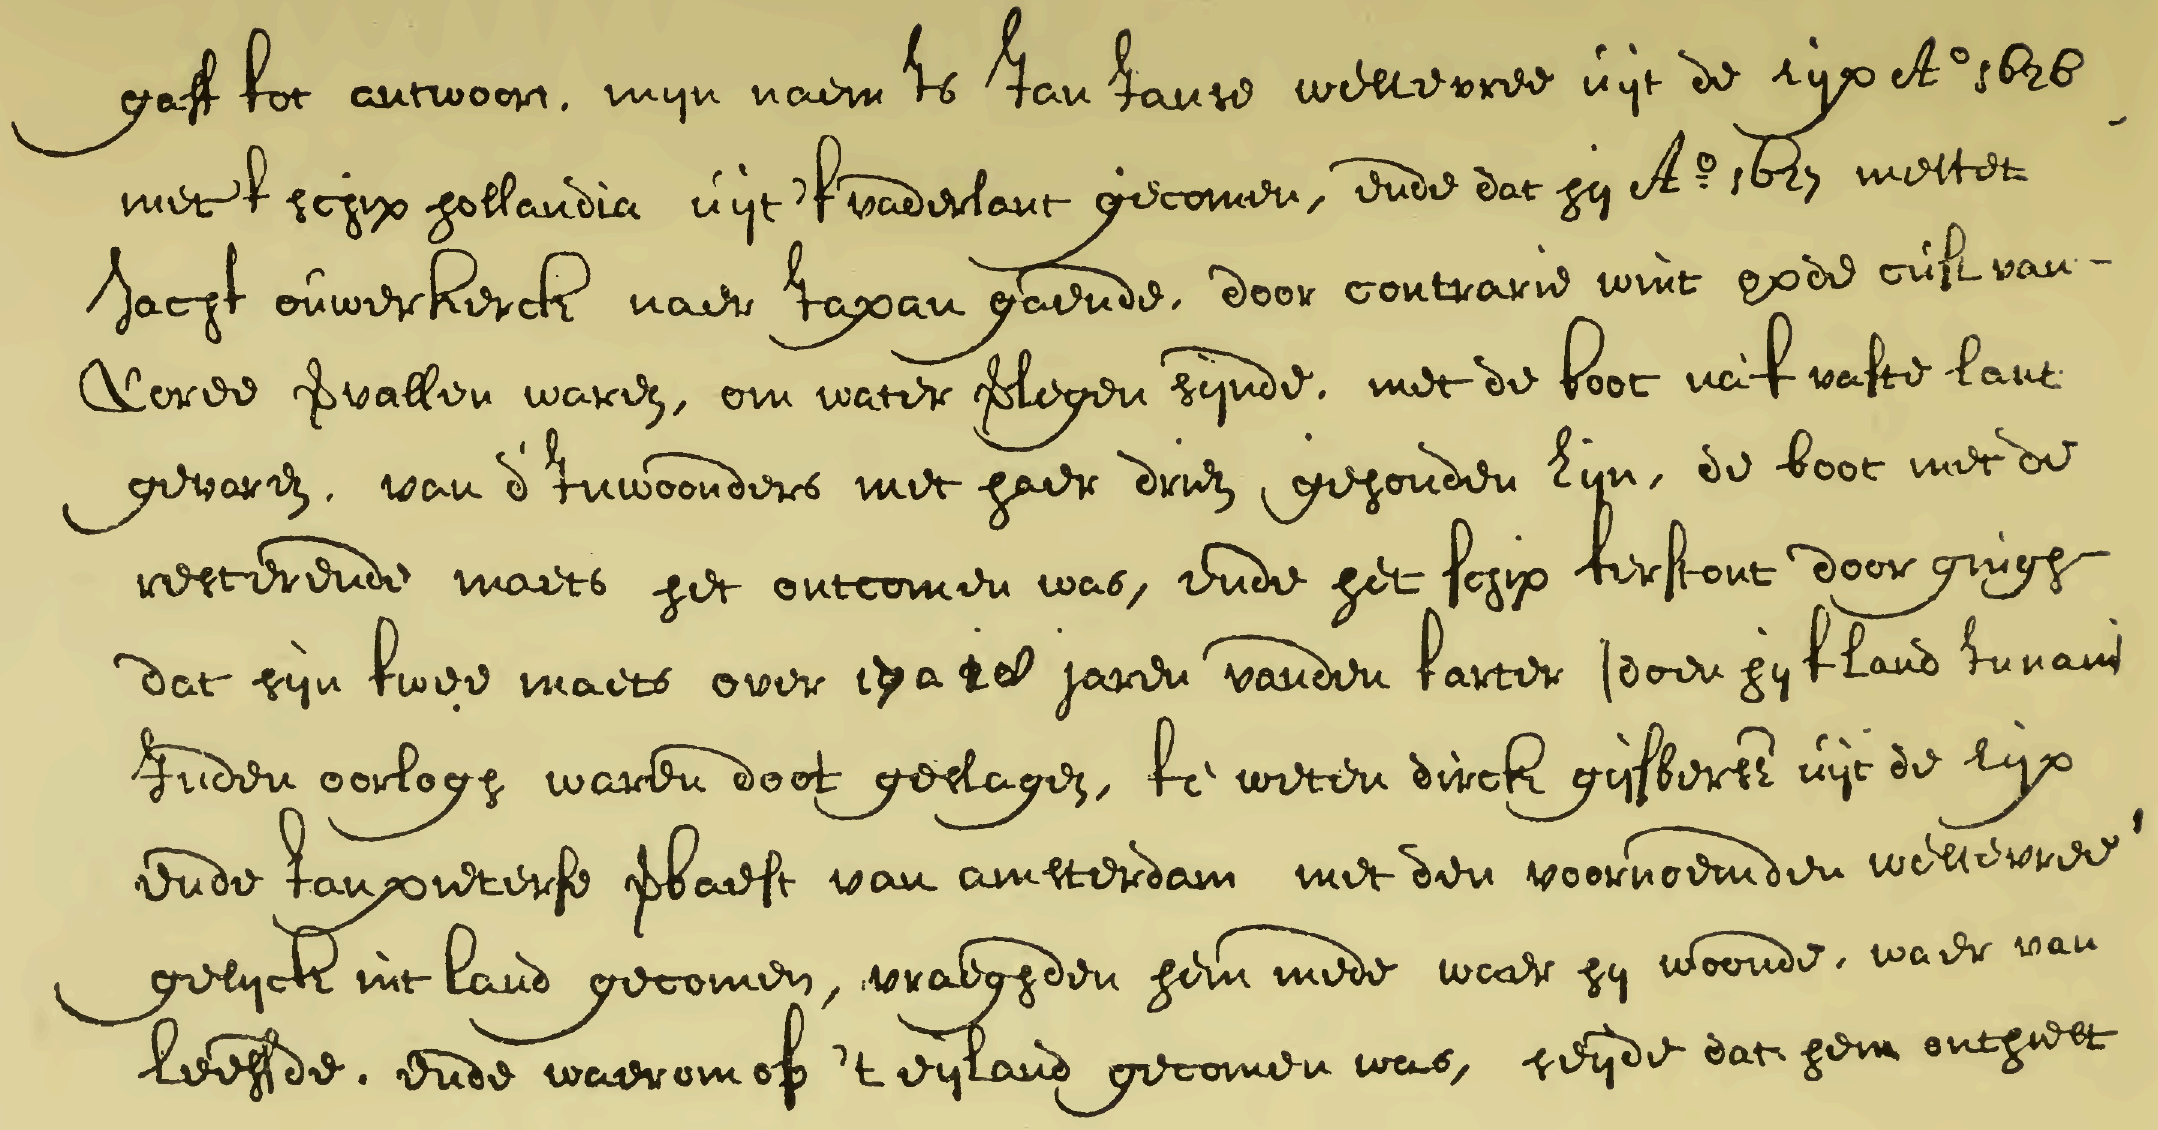 gaff tot antwoort. mijn naem Is Jan Janse weltevree uijt de rijp Aº 1626
met 't schip hollandia uijt 't vaderlant gecomen, ende dat hij Aº 1627 mettet
Jacht ouwerkerck naer Japan gaende. door contrarie wint opde cust van
Coree vervallen waren, om water verlegen sijnde. met de boot na 't vaste lant
gevaren. van d' Inwoonders met haer drien gehouden zijn, de boot met de
resterende maets het ontcomen was, ende het schip terstont door gingh
dat sijn twee maets over 17 a 18 jaren vanden tarter (doen hij 't land Innam)
Inden oorlogh waren doot geslagen, te weten dirck gijsbertsz uijt de rijp
ende Jan pieterse verbaest van amsterdam met den voornoemden weltevree
gelijck int land gecomen, vraeghden hem mede waer hij woonde. waer van
leeffde. ende waerom op 't eijland gecomen was, seijde dat hem onthielt